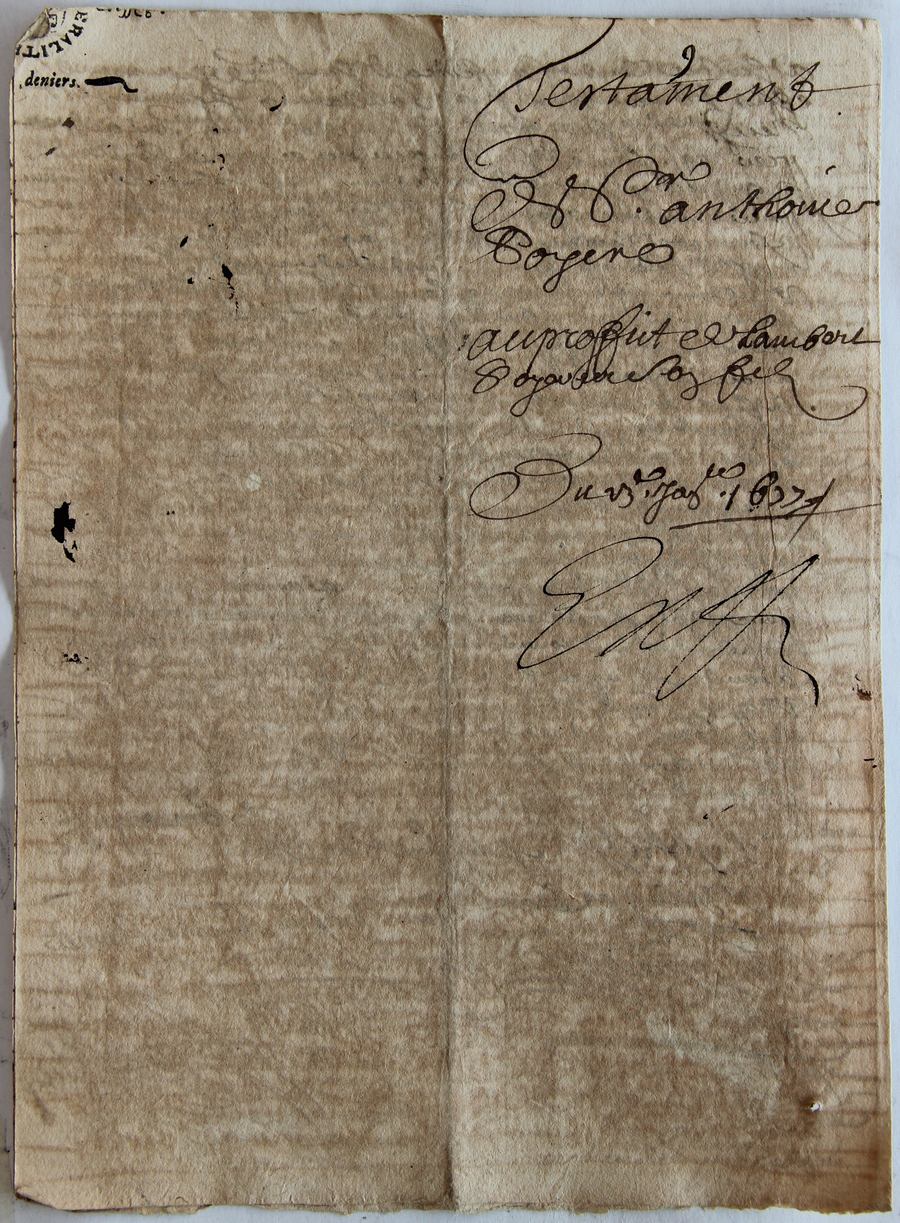 ERALITE
deniers.
Testament
de Sr. anthoine
Boyere
au proffit de Lambert
Boyere son fil
Du 1677